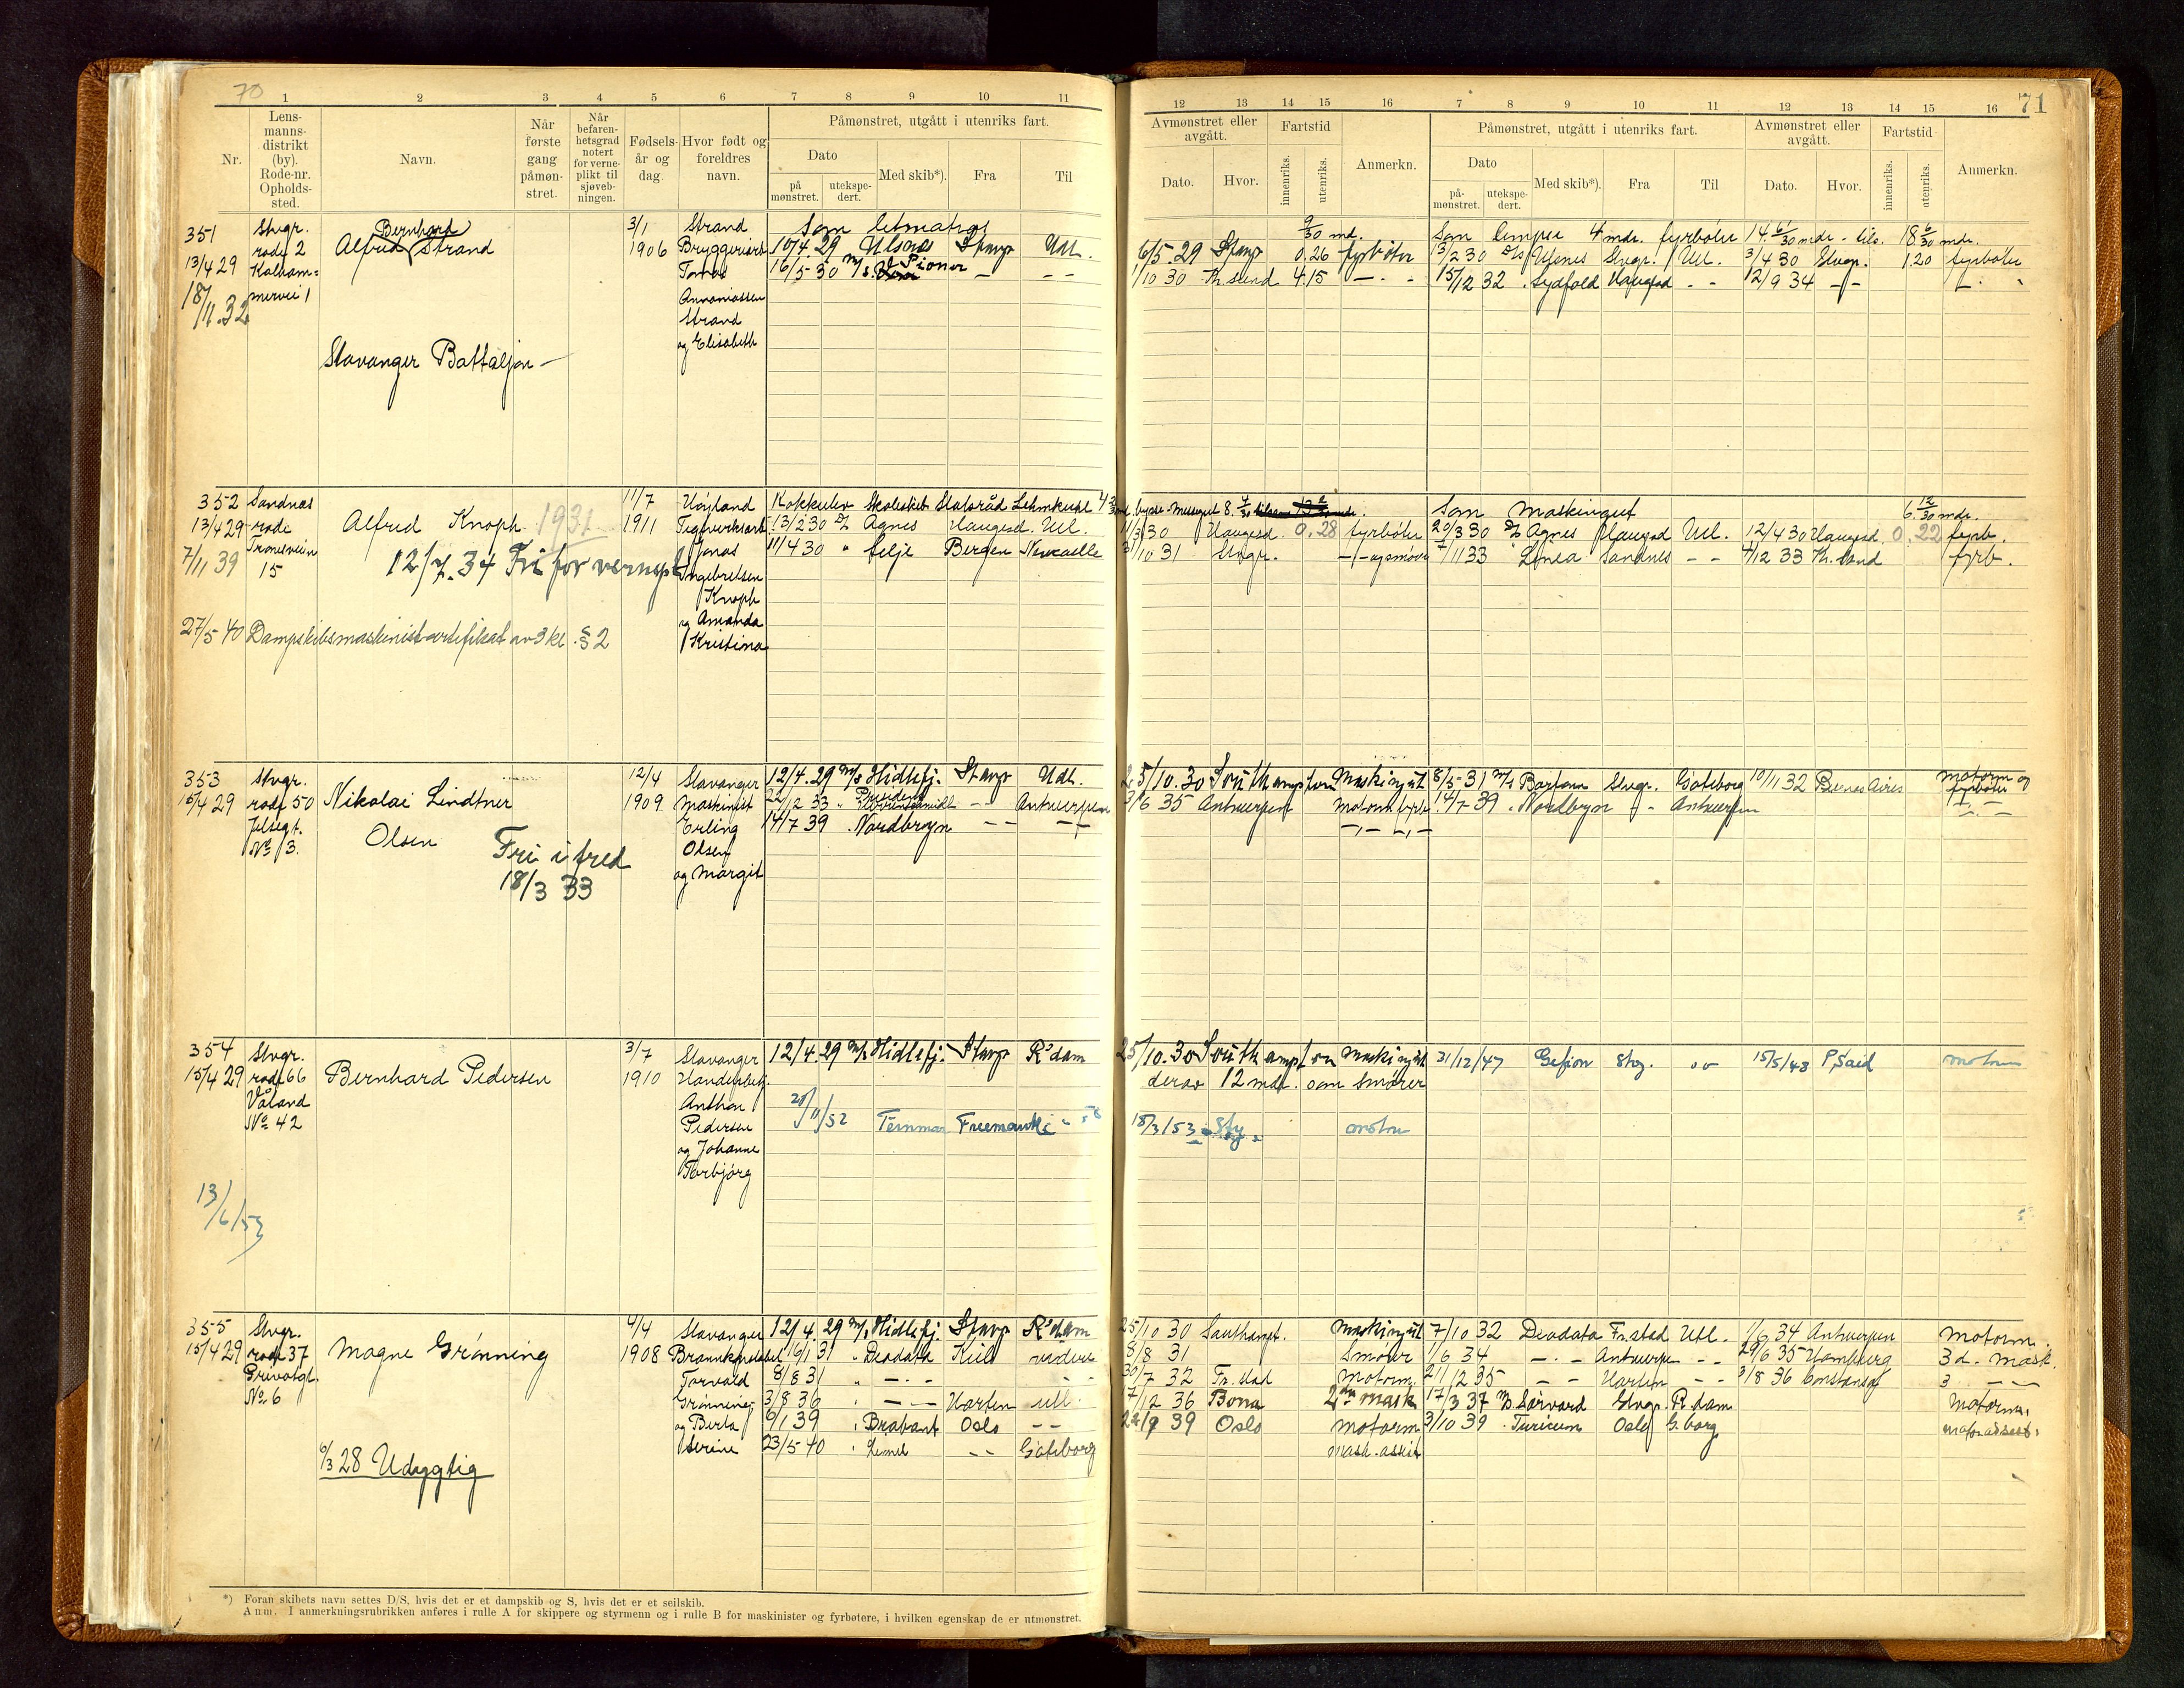 70
1 2 3 4 5 6 7 8 9 10 11
Nr.
Lens-
manns-
distrikt
(by).
Rode-nr.
Opholds-
sted.
Navn.
Når
første
gang
påmøn-
stret.
Når
befaren-
hetsgrad
notert
for verne-
plikt til
sjøveb-
ningen.
Fødsels-
år og
dag.
Hvor født og
foreldres
navn.
Påmønstret, utgått i utenriks fart.
Dato
på
mønstret.
utekspe-
dert.
Med skib*).
Fra
Til
351
13/4 29
18/11.32
Stvgr.
rode 2
Kalham=
mervei 1
Bernhard
Alfred Strand
Stavanger Bataljon -
3/1
1906
Strand
Bryggeriarb
Tomas
Annaniassen
Strand
og Elisabeth
Som letmatros
10/4.29 Stavgr Utl.
16/5-30 M/s. Pioner - - -
352
13/4 29
7/11 39
Sandnæs
rode
15
Alfred Knoph 1931
12/7.34 Fri for vernepl
27/5 40 Dampskibsmaskinistcertifikat av 3 kl. § 2
11/7
1911
Høyland
Teglverksarb
Jonas
Ingebretsen
Knoph
og Amanda
Kristiona
Kokkelev Skoleskib Statsråd Lehmkuhl
13/2 30 D/s Agnes Haugesd. Utl.
11/4 30 " Selje Bergen Newcastle
353
15/4 29
Stvgr.
rode 50
Jelsegt.
No 3.
Nikolai Lindtner
Olsen
Fri i fred
18/3 33
12/4
1909
Stavanger
Maskinist
Erling
Olsen
og Margit
12/4.29 M/s Hidlefj. Stavgr Utl.
22/2 33 " - - Antwerpen
14/7 39 . Nordbryn - - - -
354
15/4 29
13/6/53
Stvgr.
rode 66
Våland
No 42
Bernhard Pedersen
3/7
1910
Stavanger
Handelsbetj.
Anthon
Pedersen
og Johanne
Torbjørg
12/4.29 M/s Hidlefj. Stavgr R'dam
11/52
355
15/4 29
Stvgr.
rode 37
No. 6
Magne Grønning
6/3 28 Udygtig
4/4
1908
Stavanger
Torvald
Grønning
og Berta
Serine
12/4.29 M/s Hidlefj. Stavgr R'dam
16/1 31 " Deodata Kiel videre
8/8 31 " - . - - -
3/8 36 " - - Horten utl.
6/1 39 " Brabant Oslo - -
23/5 40 " - - Göteborg
*) Foran skibets navn settes D/S, hvis det er et dampskib og S, hvis det er et seilskib.
Anm. I anmerkningsrubrikken anføres i rulle A for skippere og styrmenn og i rulle B for maskinister og fyrbøtere, i hvilken egenskap de er utmønstret.
12 13 14 15 16 7 8 9 10 11 12 13 14 15 16
71
Avmønstret eller
avgått.
Fartstid
Dato.
Hvor.
innenriks.
utenriks.
Anmerkn.
Påmønstret, utgått i utenriks fart.
Dato
på-
mønstret.
utekspe-
dert.
Med skib*).
Fra
Til
Avmønstret eller
avgått.
Fartstid
Dato.
Hvor.
innenriks.
utenriks.
Anmerkn.
9/30 md. Som lemper 4 mdr. fyrbøter 14 6/30 mdr - tils. 18 6/30 mdr.
6/5.29 Stavgr 0.26 fyrbøter 13/2 30 D/s Utsnes Stvgr. Utl. 3/4 30 Stvgr. 1.20 fyrbøter
1/10 30 Kr. sund 4.15 - . - 15/12 32 . Sydfold Haugesd - - 12/9 34
Som Maskingut 6. 12/30 mdr.
11/3 30 Haugesd. 0.28 fyrbøter 20/3 30 D/s Agnes Haugesd Utl. 12/4 30 Haugesd. 0.22 fyrb.
3/10 31 Stvgr. 7/11 33 " Linea Sandnes - - 4/12 33 Kr. sand fyrb.
25/10.30 Southampton Maskingut 8/5-31 M/s Stvgr. Göteborg 10/11 32 Buenos Aires motorm og
fyrbøter
3/6 35 Antwerpen Motorm fyrb 14/7-39 . Nordbryn - Antwerpen
25/10.30 Southampton Maskingut 31/12/47 Gefion Stvg. 15/5/48 P, Said motorm
derav 12 mdr. som Smører
18/3/53 Stvg motm
25/10 30 Southampt. Maskingut 7/10 32 Deodata Fr.stad Utl. 1/6 34 Antwerpen Motorm.
8/8 31 Smører 1/6 34 - . - Antwerpen - - 29/6 35 Hamburg 3d. mask.
30/7 32 Fr. stad Motorm. 21/12 35 - - Horten - - 3/8 36 Constanza 3 - -
7/12 36 Bona 2den mask 17/3 37 M. Sørvard Stvgr. R.dam Motorm.
22/9 39 Oslo motorm 3/10 39 . Turicum Oslo G.borg
mask. assist